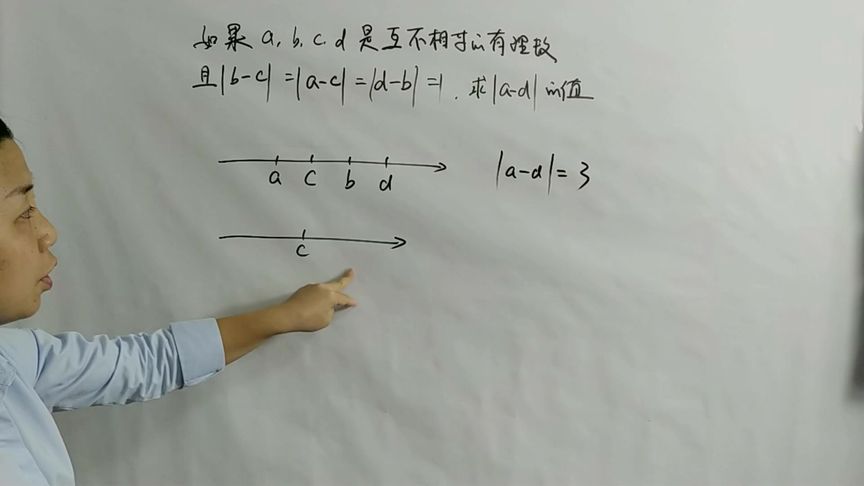 如果 a, b, c, d 是互不相等的有理数
且|b-c| = |a-c| = |d-b| = 1. 求|a-d|的值
a c b d
|a-d| = 3
c